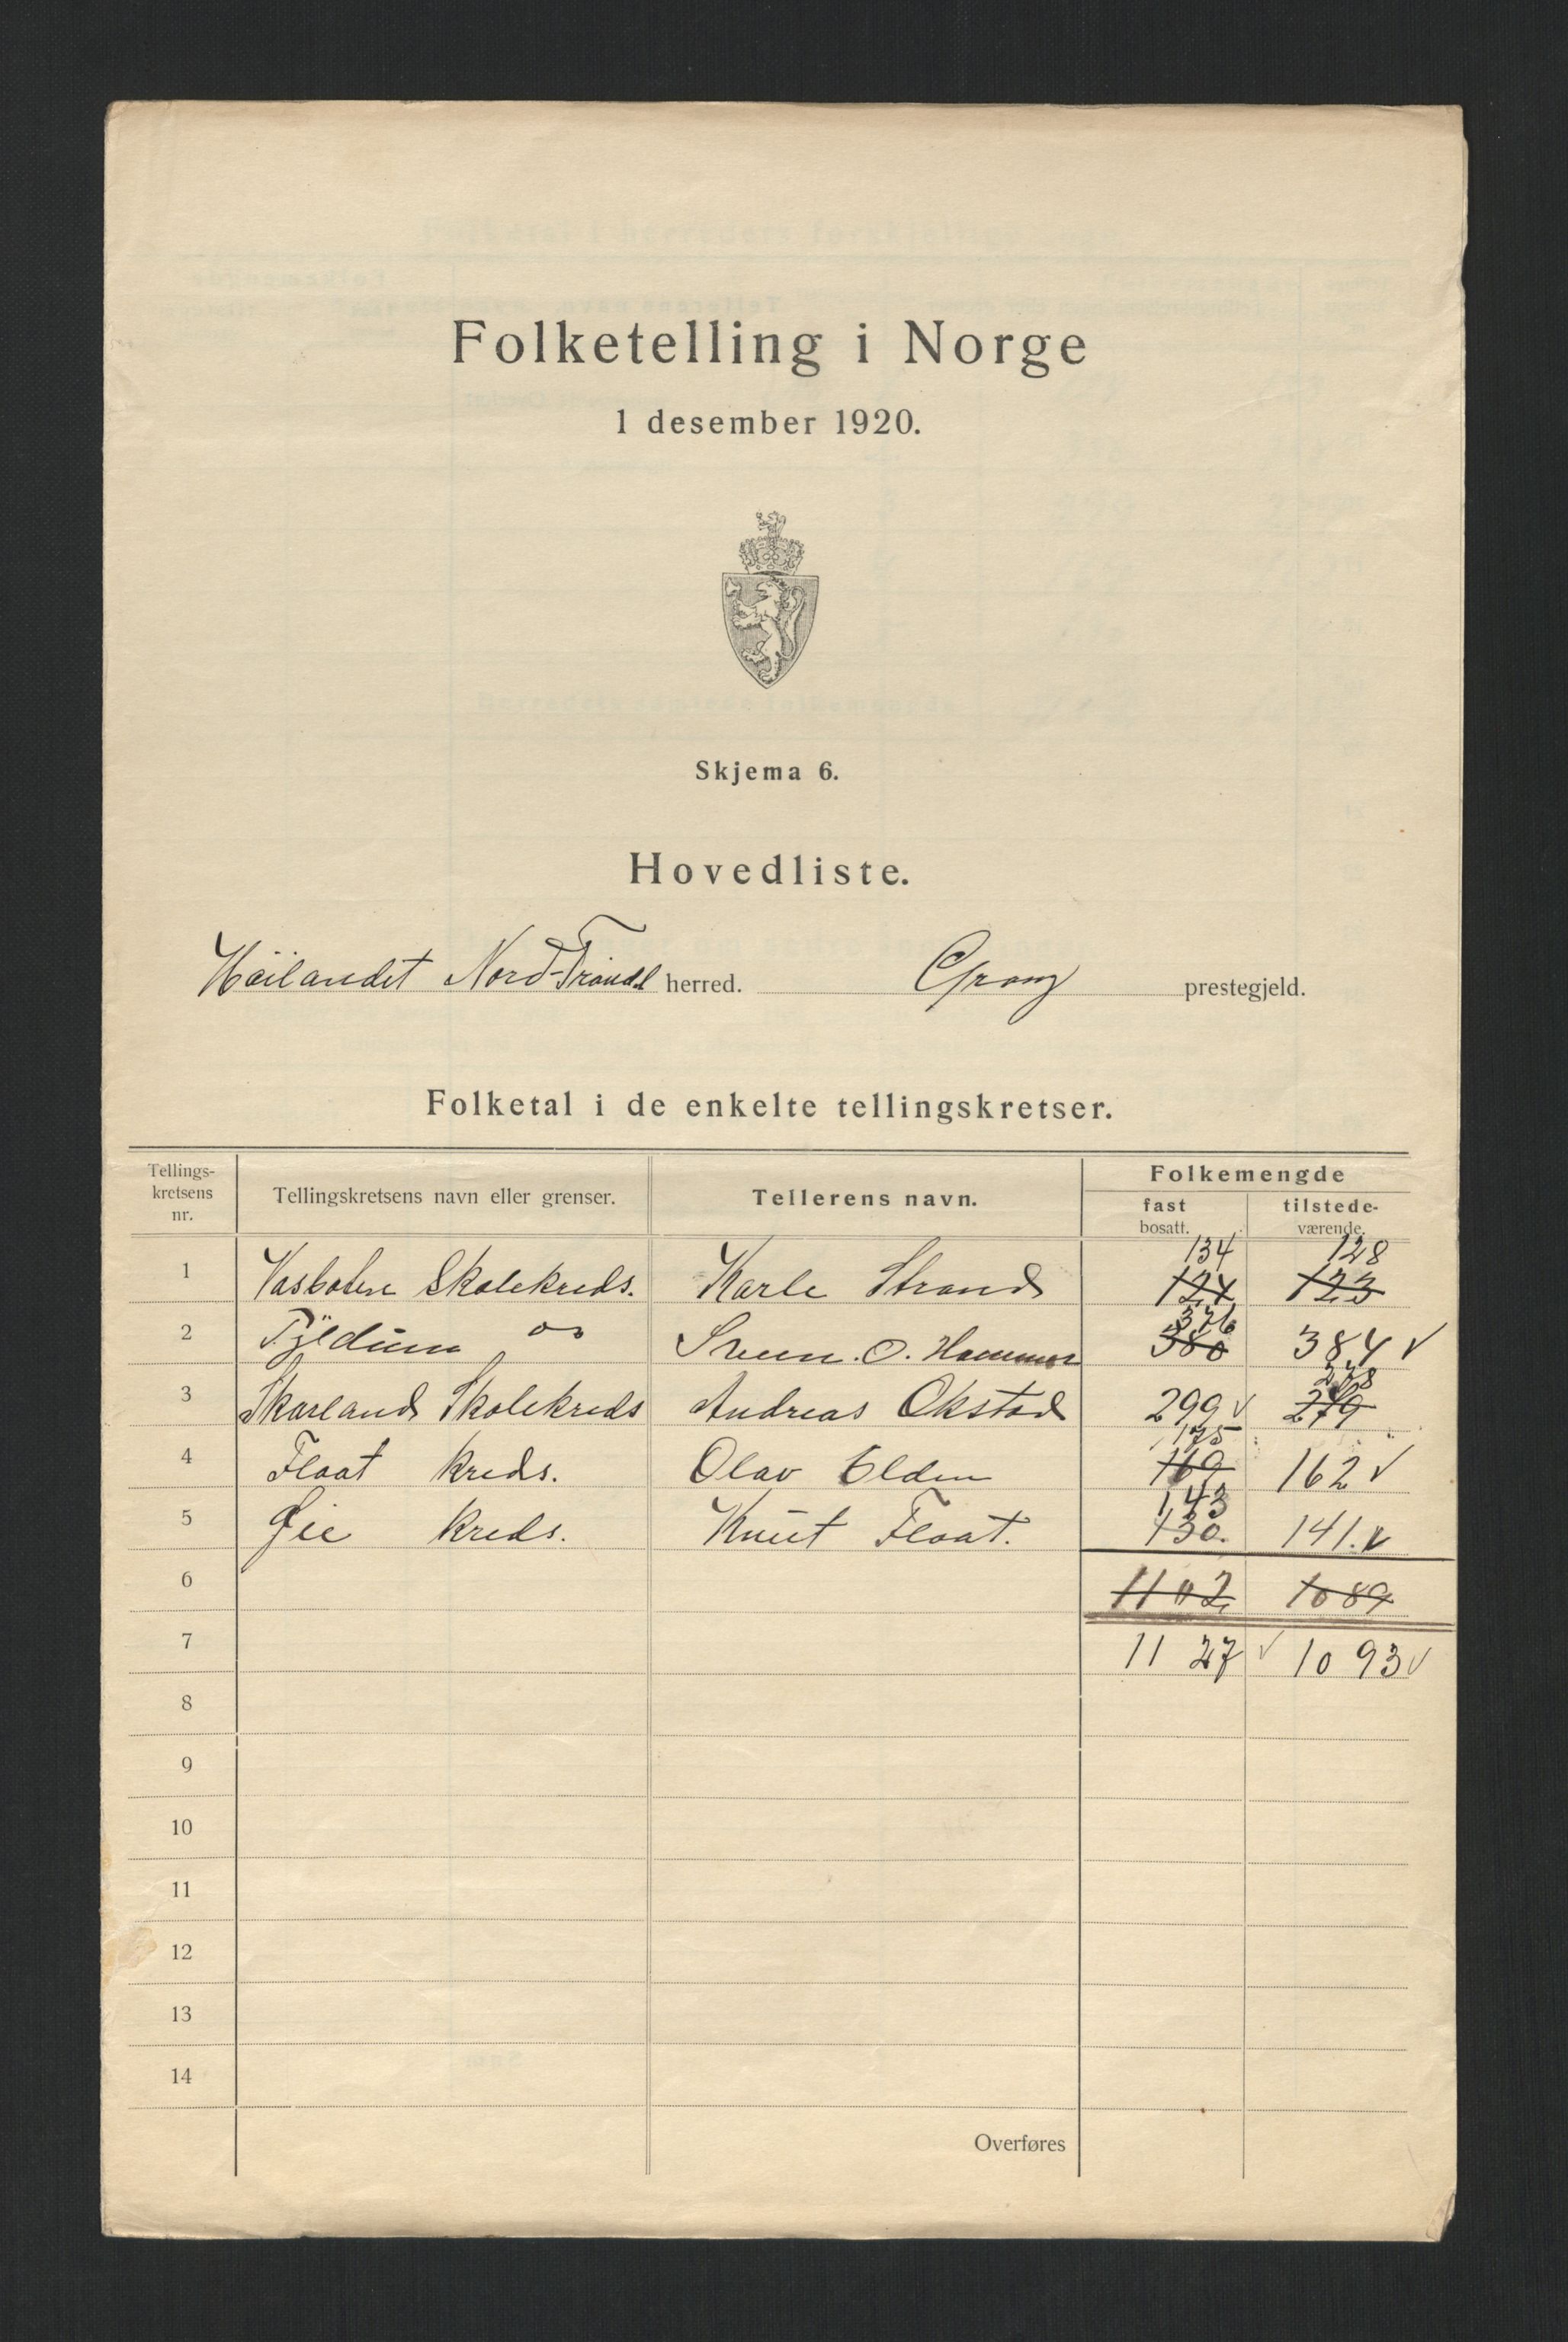 Folketelling i Norge
1 desember 1920.
Skjema 6.
Hovedliste.
Höilandet Nord-Trøndl herred. Grong prestegjeld.
Folketal i de enkelte tellingskretser.
Tellings-kretsens nr. Tellingskretsens navn eller grenser. Tellerens navn. Folkemengde
fast bosatt. tilstede-værende.
134 128
1 Vasbotn Skolekreds. Karle Strand 124 123
376
2 Tyldum do Sveen. O. Hammer 380 384 ✓
278
3 Skarland Skolekreds Andreas Okstad 299 ✓ 279
175
4 Flaat kreds. Olav Elden 169 162 ✓
143
5 Øie kreds. Knut Flaat. 130. 141. ✓
6 1102 1089
7 1127 ✓ 1093 ✓
8
9
10
11
12
13
14
Overføres